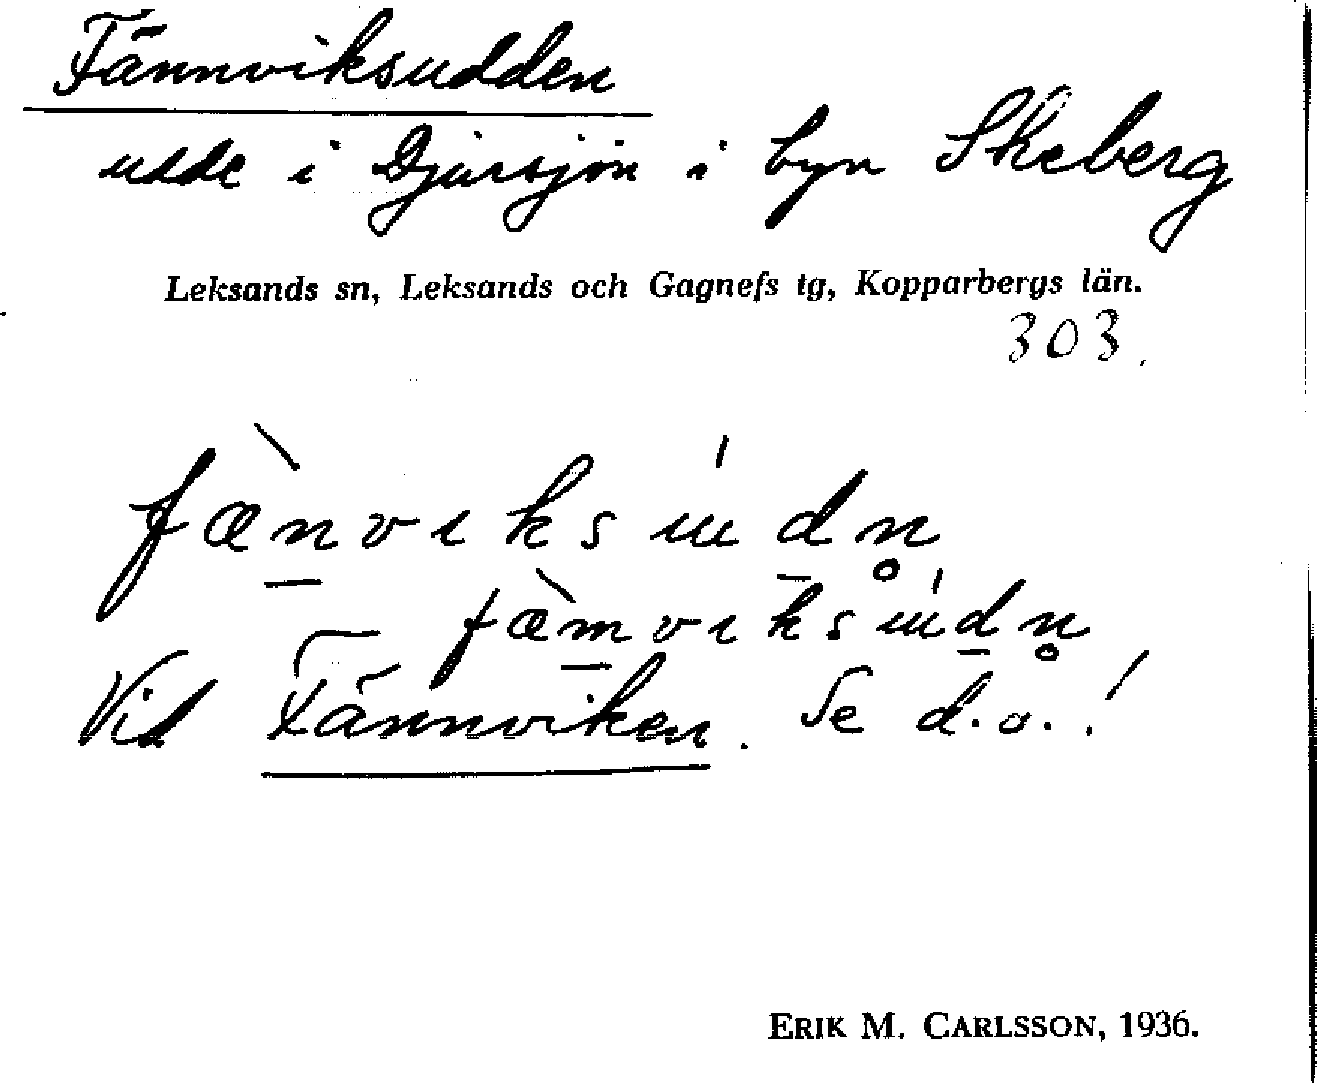 Fännviksudden
udde i Djursjön i byn Skeberg
Leksands sn, Leksands och Gagnefs tg, Kopparbergs län.
303.
Vid Fännviken. Se d.o.!
ERIK M. CARLSSON, 1936.